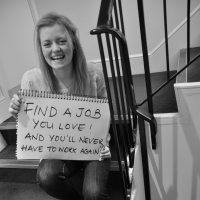 FIND A JOB
YOU LOVE!
AND YOU'LL NEVER
HAVE TO WORK AGAIN